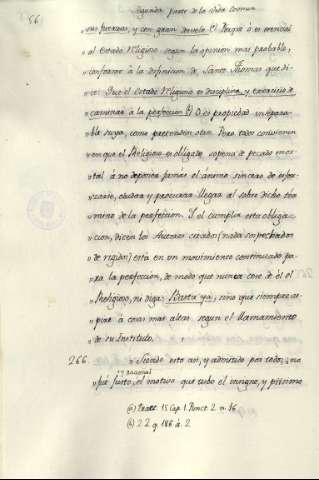 56 Segunda parte de la Vida Comun
"sus fuerzas, y con gran desvelo. O Porque ó es esencial
"al Estado Religioso segun la opinion mas probable,
"conforme à la definicion de Santo Thomas que di-
"ce: Que el estado Religioso es disciplina, y exercicio de
"caminar à la perfeccion (b) O es propiedad insepara-
"ble suya, como pretenden otros. Pero todos convienen
"en que el Religioso es obligado sopena de pecado mor-
"tal á no deponer jamás el ánimo sincero de esfor-
"zarse, estudiar y procurar llegar al sobre dicho ter-
"mino de la perfeccion. Y el cumplir esta obliga-
"cion, dicen los Autores citados (nada sospechosos
"de rigidos) está en un movimiento continuado pa-
"ra la perfeccion, de modo que nunca cese de él el
"Religioso, ni diga: Basta ya; sino que siempre as-
"pire à cosas mas altas segun el llamamiento
"de su Instituto.
266. "Siendo esto asi, y admitido por todos,
y racional
fué justo, el motivo que tubo el insigne, y piísimo
(a) Tract. 15 Cap. 1. Punct. 2. n. 16
(b) 2. 2. q. 186. á. 2